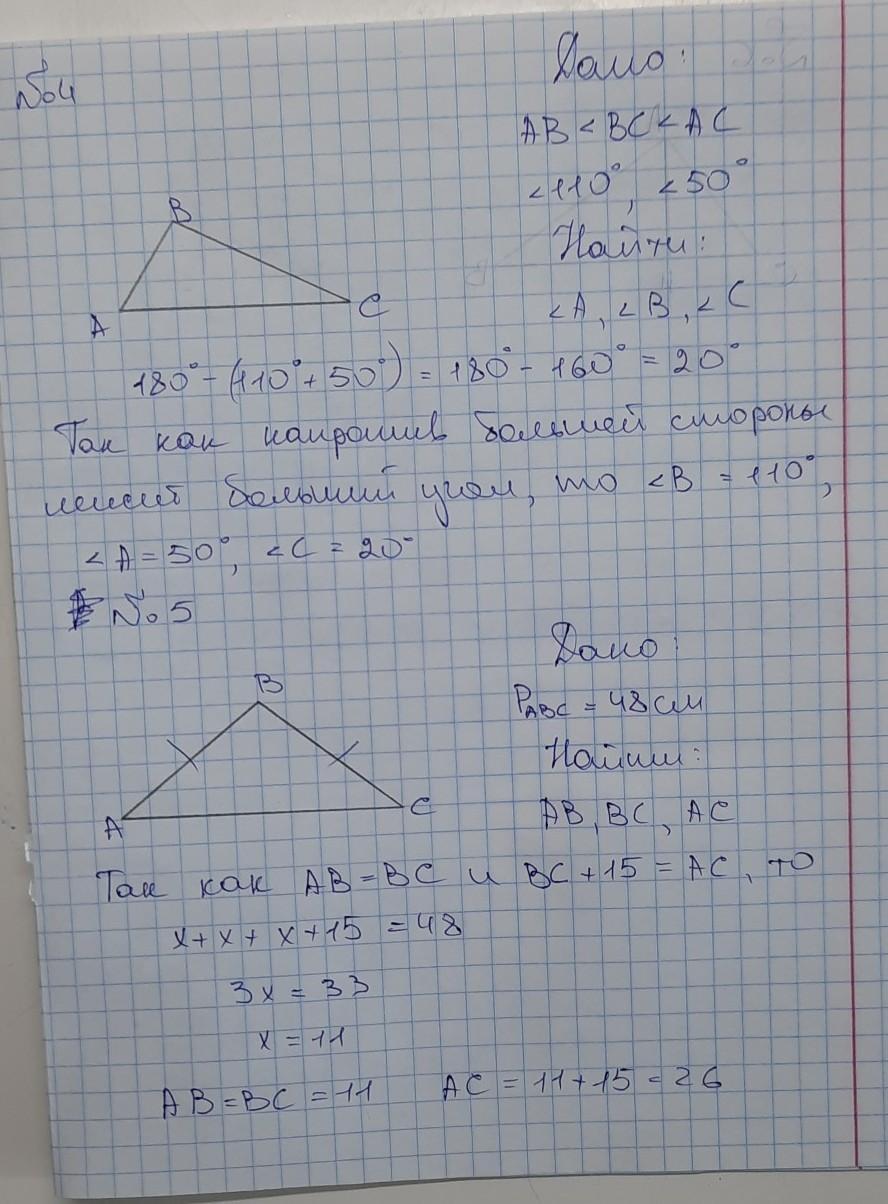 №4
Дано:
AB < BC < AC
<110°, <50°
Найти:
B
A
C
<A, <B, <C
180° - (110° + 50°) = 180° - 160° = 20°
Так как напротив большей стороны
лежит больший угол, то <B = 110°,
<A = 50°, <C = 20°
№5
Дано:
P_ABC = 48 см
Найти:
B
A
C
AB, BC, AC
Так как AB = BC и BC + 15 = AC, то
x + x + x + 15 = 48
3x = 33
x = 11
AB = BC = 11 AC = 11 + 15 = 26